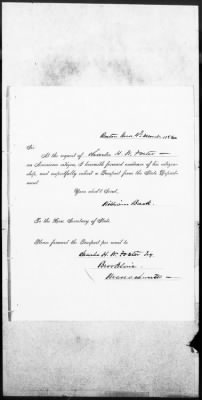 Boston
Sir
At the request of Charles H. W. Foster
an American citizen, I herewith forward evidence of his citizen-
ship, and respectfully solicit a Passport from the State Depart-
ment.
Your obed't Serv't,
William Back
To the Hon. Secretary of State.
Please forward the Passport per mail to
Charles H. W. Foster Esq
Brookline
Massachusetts